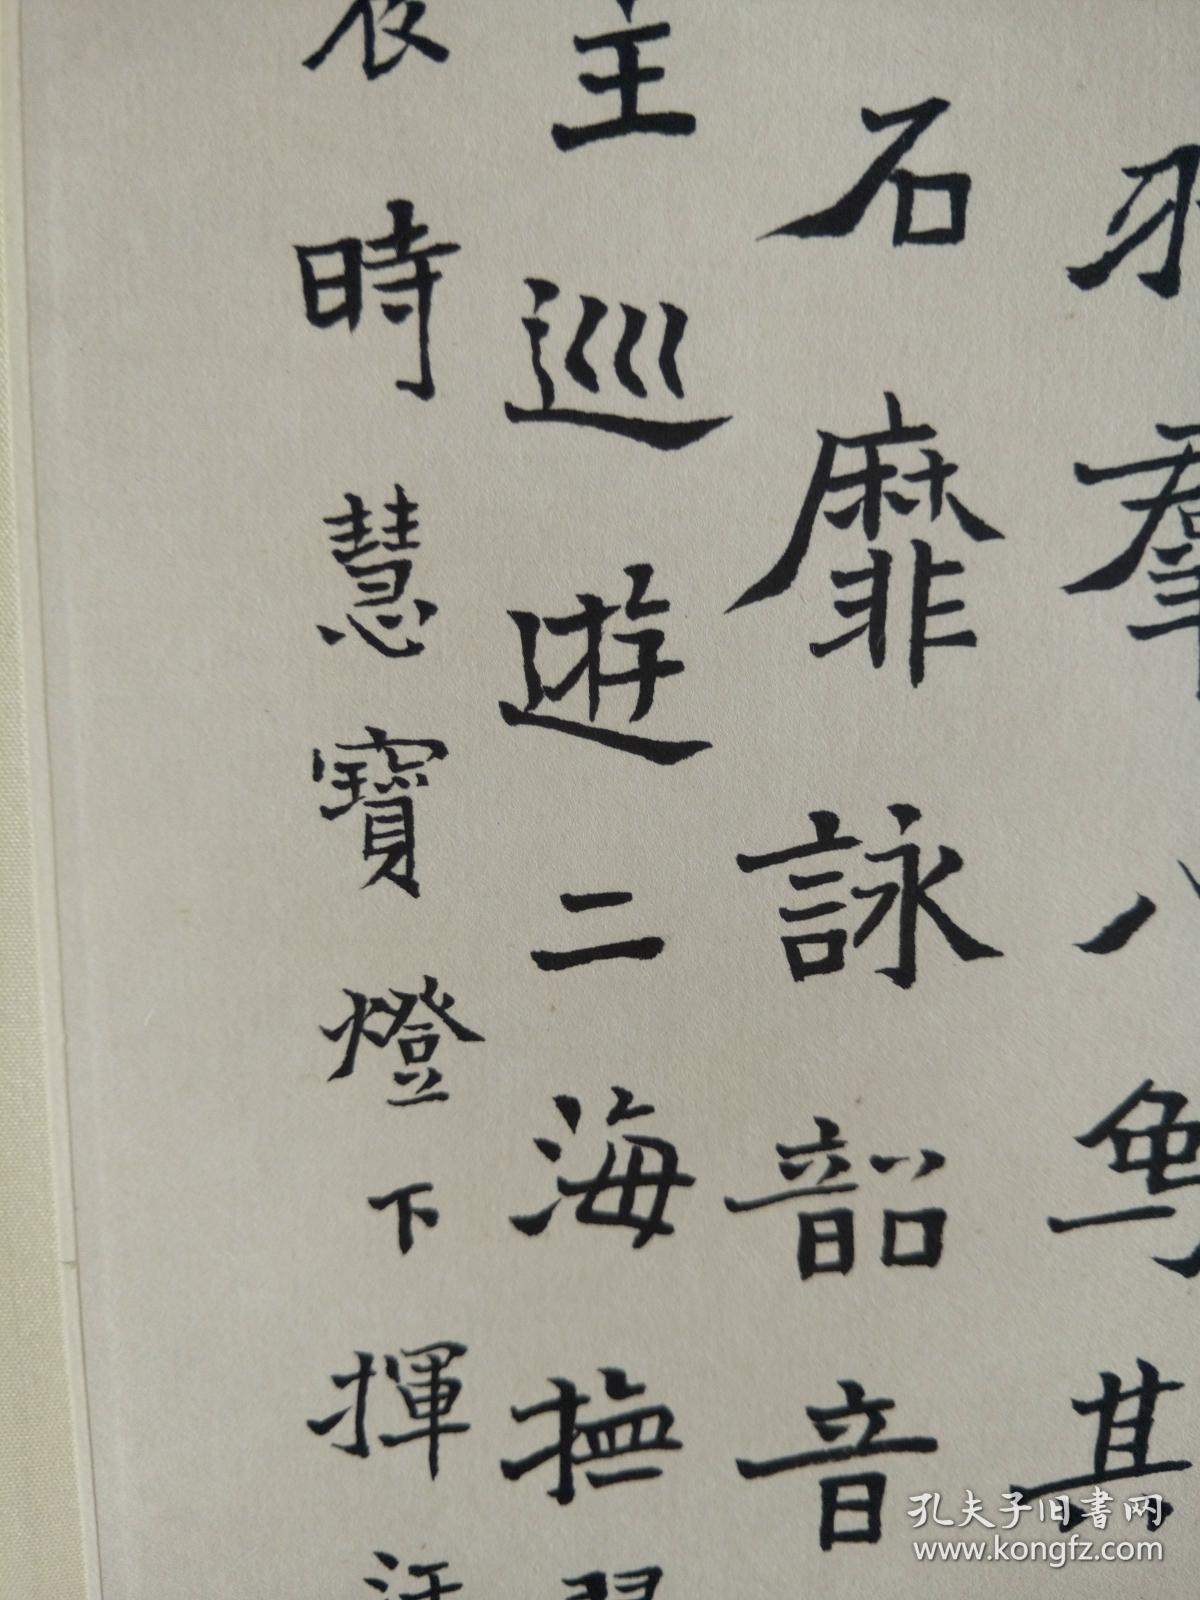 羣其
石靡詠韶音
主巡遊二海撫
時慧寶燈下揮
孔夫子旧書网
www.kongfz.com